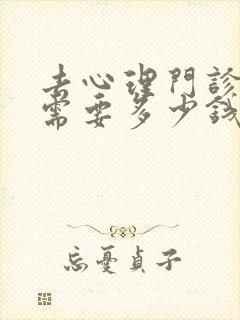 去心理門診
需要多少錢
忘憂貞子